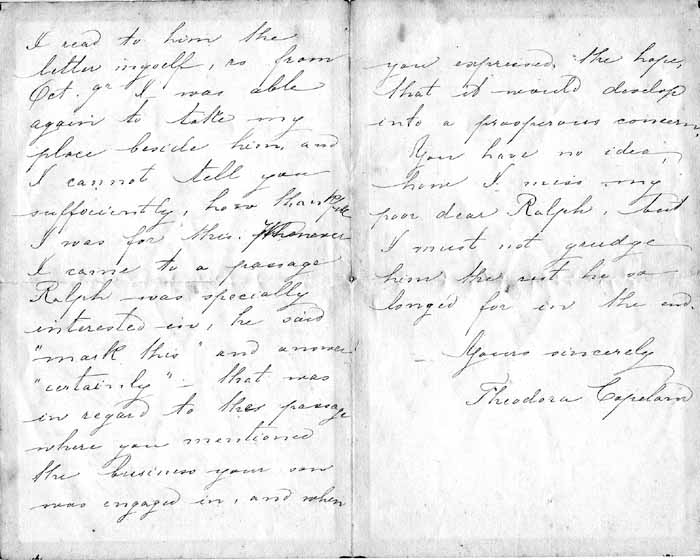 I read to him the
letter myself, as from
Oct. 9th I was able
again to take my
place beside him and
I cannot tell you
sufficiently, how thankful
I was for this. Whenever
I came to a passage
Ralph was specially
interested in, he said
"mark this" and answer
"certainly" – that was
in regard to the passage
where you mentioned
the business your son
was engaged in, and when
you expressed, the hope,
that it would develop
into a prosperous concern,
You have no idea,
how I miss my
poor dear Ralph, but
I must not grudge
him the rest he so
longed for in the end.
– Yours sincerely
Theodora Copeland